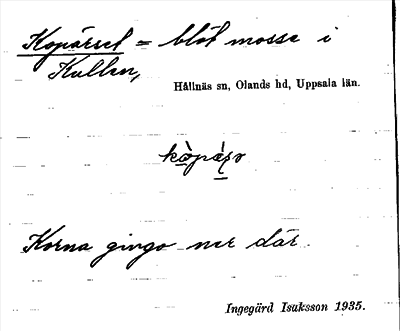 Kopärsel = blöt mossa i
Kullen,
Hållnäs sn, Olands hd, Uppsala län.
Korna gingo ner där
Ingegärd Isaksson 1935.